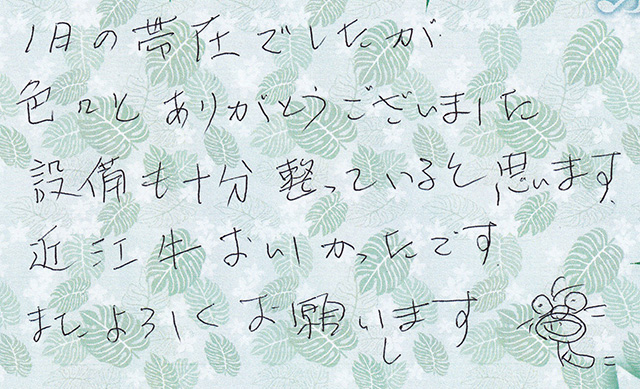 1月の帯在でしたが
色々とありがとうございました
設備も十分整っていると思います
近江牛おいしかったです
またよろしくお願いします